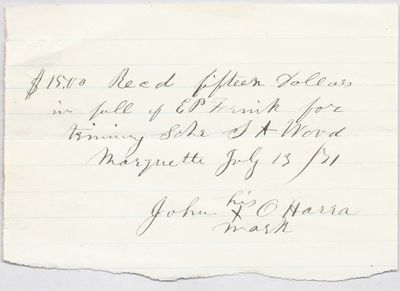 $15.00 Recd fifteen Dollars
in full of E P Frink for
triming Schr S A Wood
Marquette July 13 /71
his
John X O Harra
mark